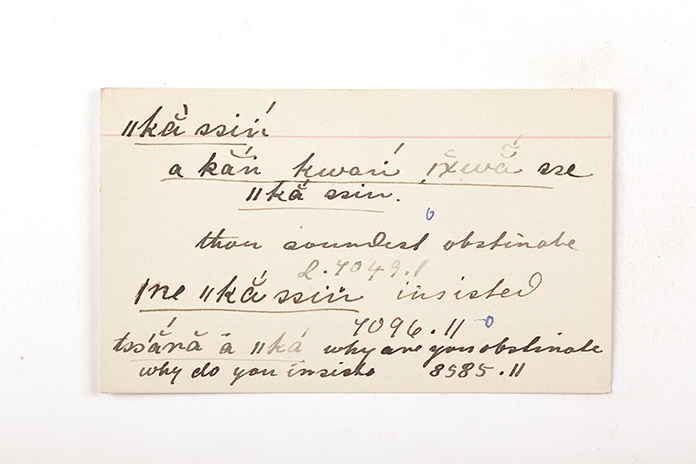 ıı kắ ssiń
a kắn kwań ıx̆wắ sse
ıı kắ ssin.
thou soundest obstinate
L.7049.1
ıne ıı kắ ssiń insisted
7096.11
tssá́nă ā ıı ká why are you obstinate
why do you insist 8585.11